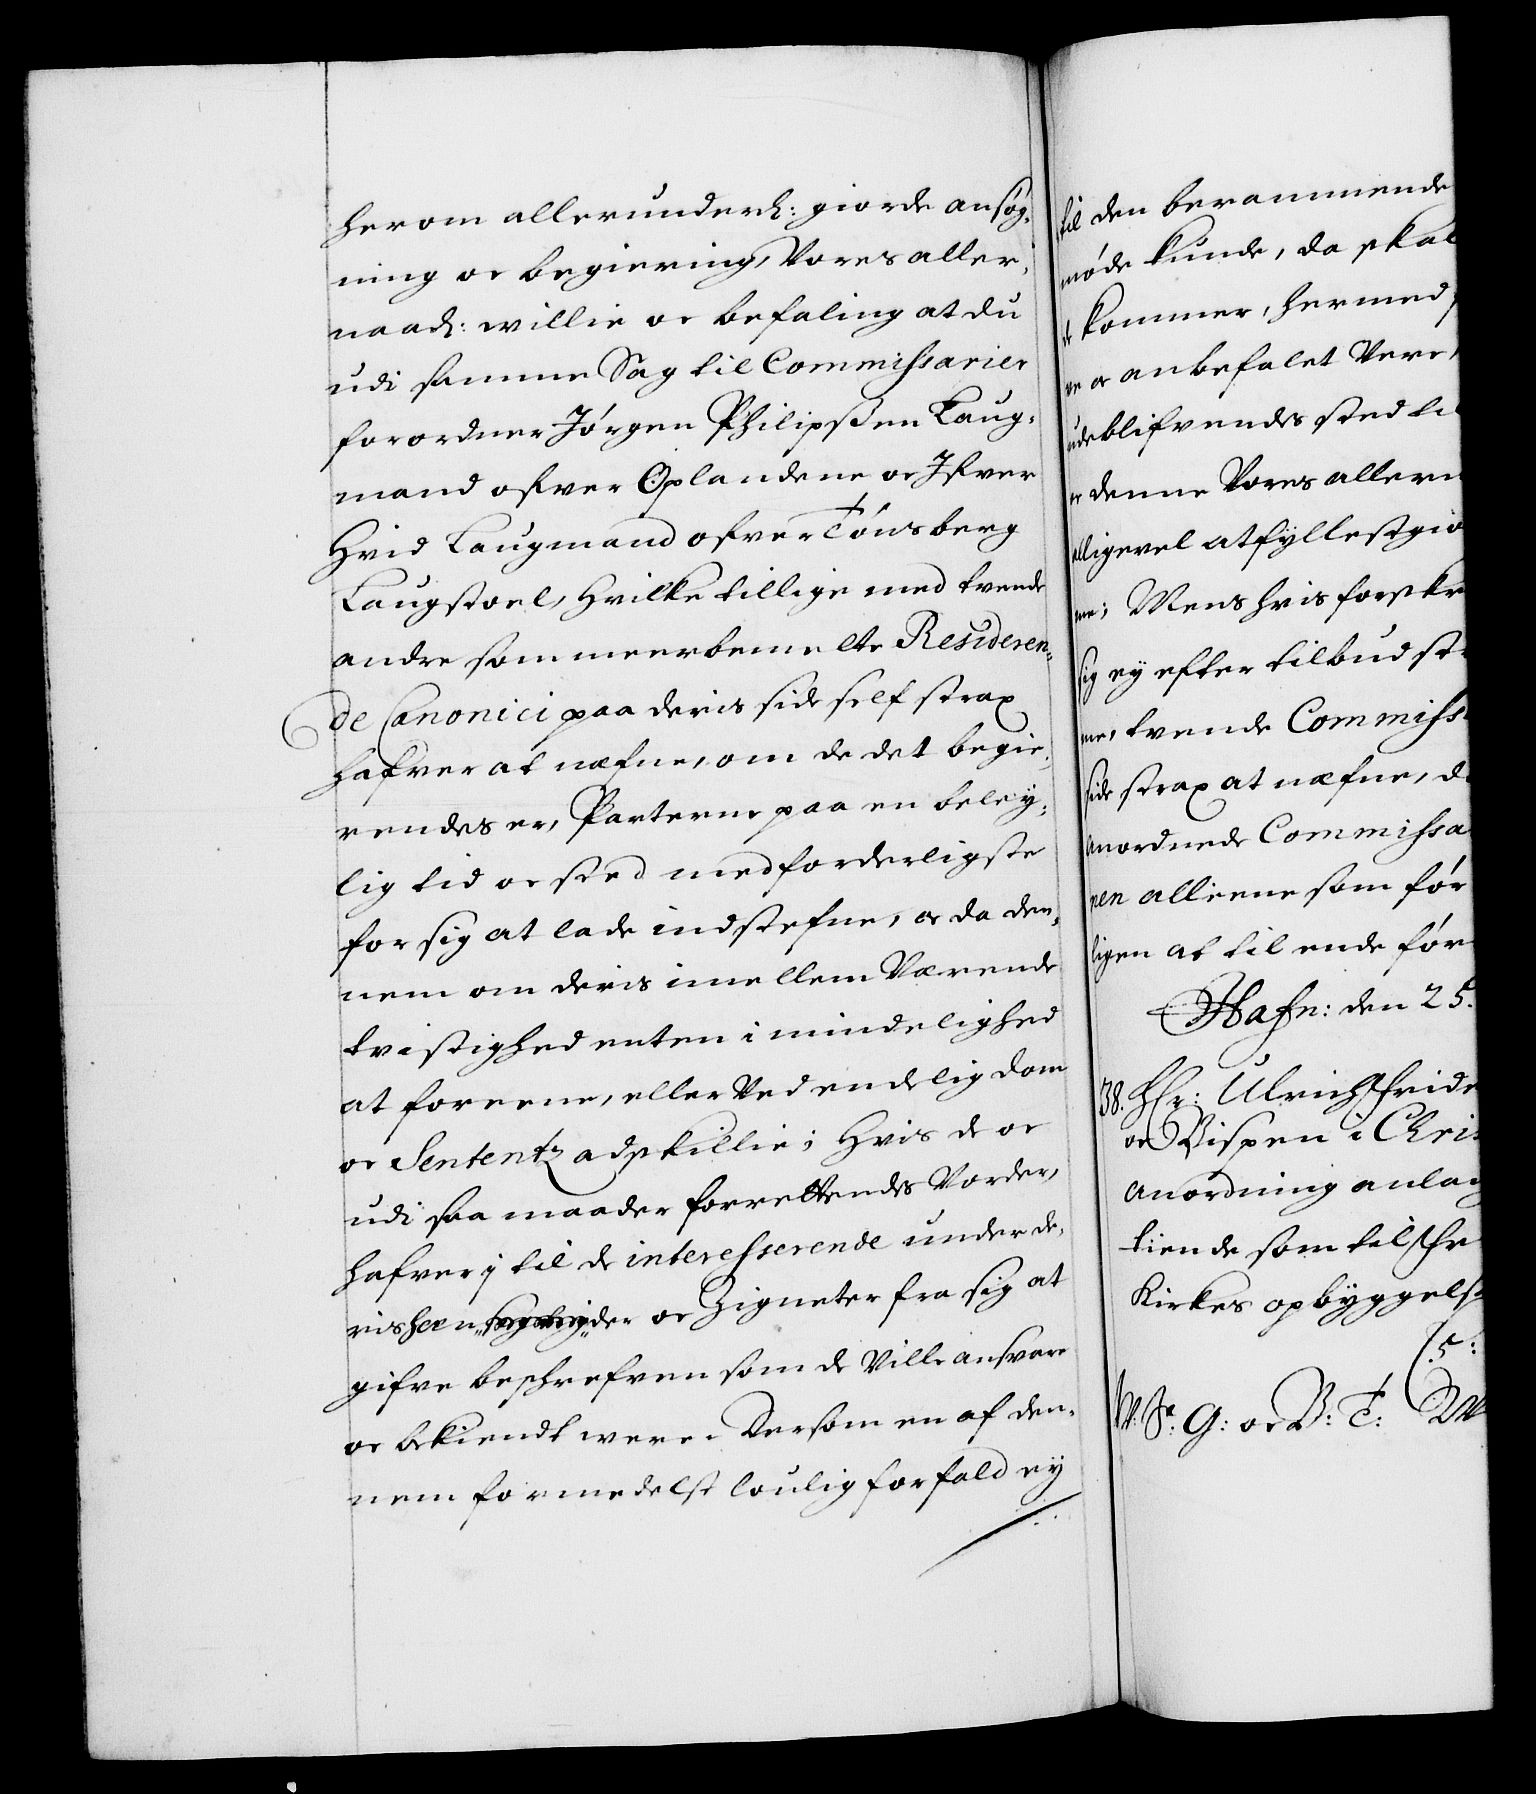 herom allerunderd: giorde ansøg-
ning oc begiering, Vores aller-
naad: willie oc befaling at du
udi samme Sag til Commissarier
forordner Jørgen Philipsßen Laug-
mand ofver Oplandene oc Ifver
Hvid Laugmand ofver Tønsberg
Laugstoel, Hvilke tillige med tvende
andre som meerbemelte Resideren-
de Canonici paa deris side self strax
hafver at næfne, om de det begie-
rendes er, Parterne paa en beley-
lig tid oc sted med forderligste
for sig at lade indstefne, oc da den-
nem om deris imellem Værende
tvistighed enten i mindelighed
at foreene, eller Ved endelig dom
oc Sententz adskillie; Hvis de oc
udi saa maader forrettendes Vorder,
hafver j til de interesserende under de-
ris hænder oc Zigneter fra sig at
gifve beschrefven som de Ville ansvare
oc bekiendt were. Dersom en af den-
nem formedelst loulig forfald ey
til den berammende
møde kunde, da skal
kommer, hermed
oc anbefalet Vere,
udeblifvendes sted
denne Vores allern
ligevel at fyllestgiø
Mens hvis forskre
sig ey efter tilbud st
tvende Commiss
side strax at næfne, d
anordnede Commissa
pen alleene som før
ligen at til ende før
Hafn: den 25.
38. Hr: Ulrich Fride
oc Bispen i Chris
Anordning anlan
tiende som til
Kirkes opbyggelse
(5:
V: S: G: oc B: T: